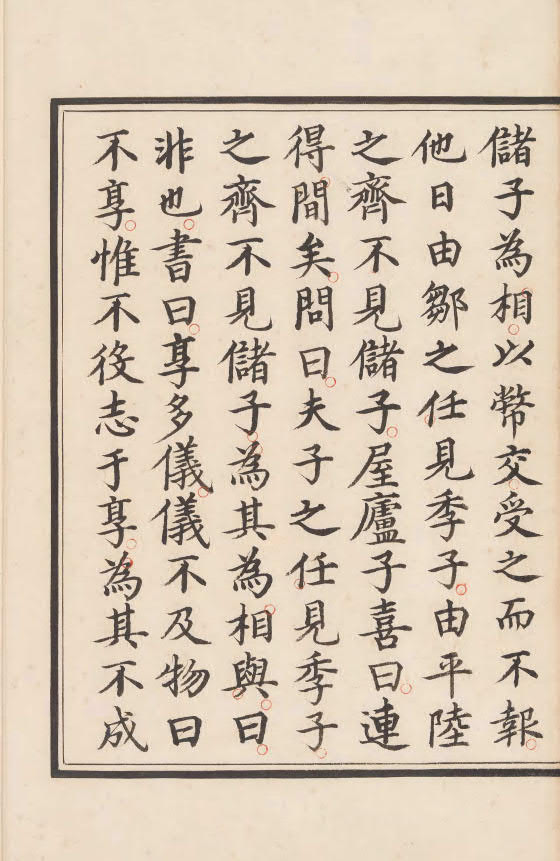 儲子為相以幣交受之而不報
他日由鄒之任見季子由平陸
之齊不見儲子屋廬子喜曰連
得間矣問曰夫子之任見季子
之齊不見儲子為其為相與曰
非也書曰享多儀儀不及物曰
不享惟不役志于享為其不成